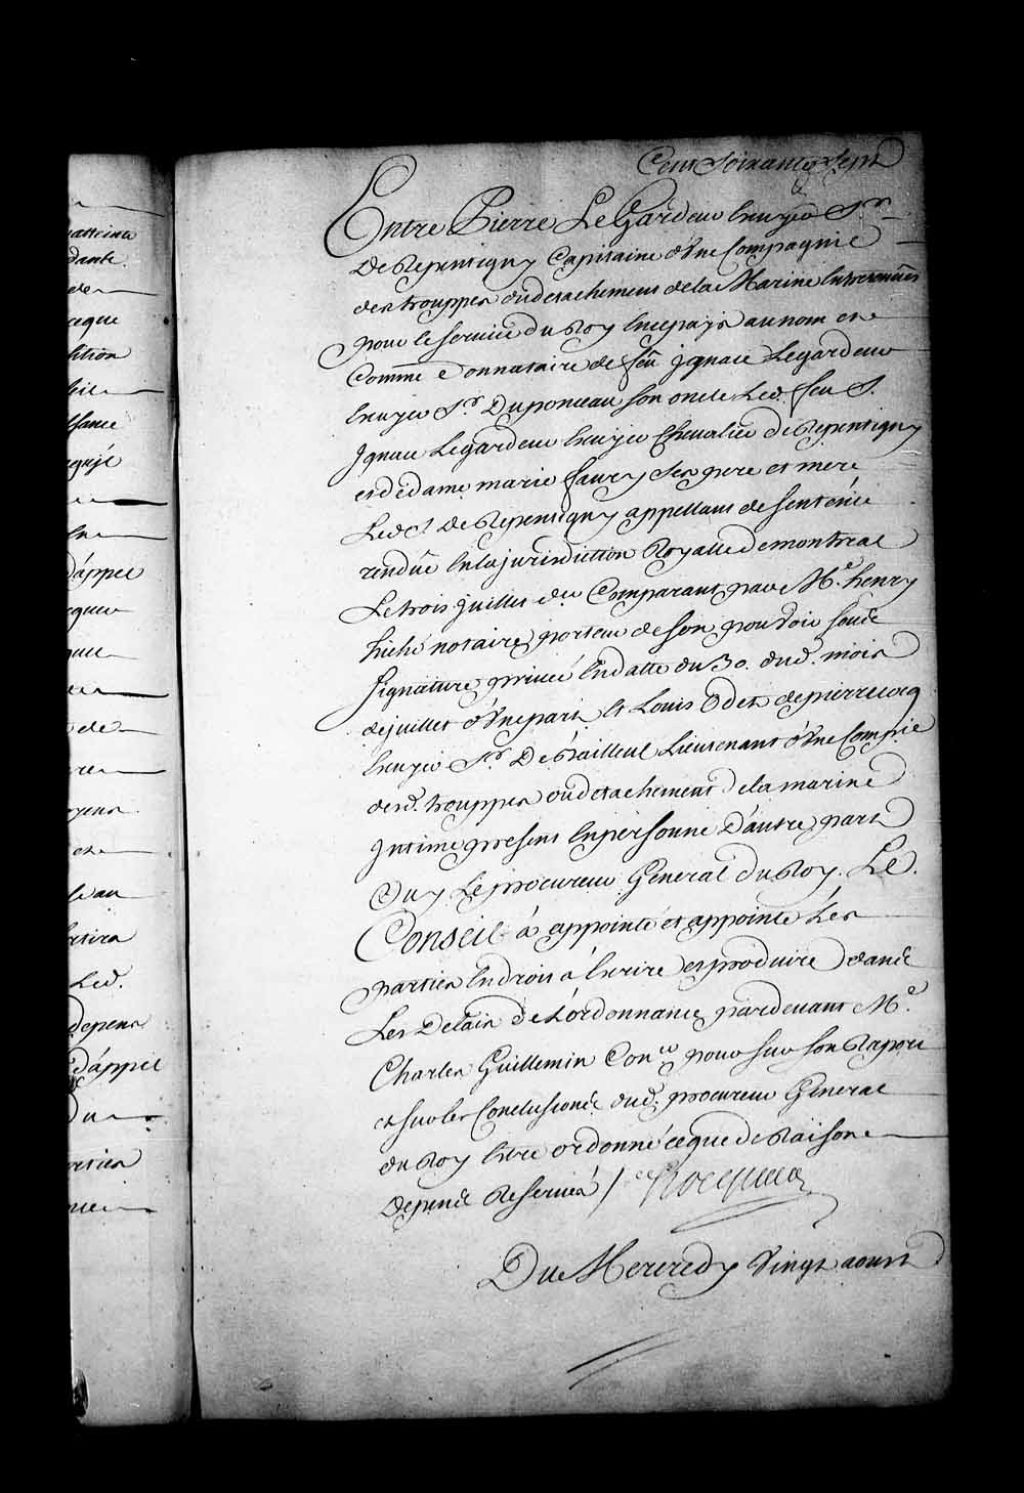 Cent Soixante Sept
Entre Pierre LeGardeur Ecuyer Sr
De Repentigny Capitaine d'Une Compagnie
des trouppes du detachement de la Marine Entretenües
pour le service du Roy En ce pays au nom et
Comme Donnataire de feu Ignace Legardeur
Ecuyer Sr. Duponceau son oncle Led. feu S.
Ignace Legardeur Ecuyer Chevalier de Repentigny
et de dame marie faury ses pere et mere
Ledt De Repentigny appellant de sentence
rendüe En la jurisdiction Royalle de montreal
Le trois juillet der Comparant par Me. henry
hiché notaire porteur de son pouvoir soubs
signature privée En datte du 30. dud. mois
de juillet d'Une part Et Louis Odet de pierrecocq
Ecuyer Sr. De Bailleul Lieutenant d'Une Compie
desd. trouppes du detachement de la marine
Intimé present En personne D'autre part
Ouy Le procureur General du Roy. LE.
Conseil à appointé et appointe Les
parties En droit à Ecrire et produire dans
Les Delais de L'ordonnance pardevant Me.
Charles Guillemin Coner pour sur son Raport
et sur les Conclusions dud. procureur General
du Roy Etre ordonné ce que de Raison
Depens Reservés /.
Du Mercredy Vingt aoust
atteina
dante.
de
ceque
lition
D'appel
de
oyens
et
Led.
depens
D'appel
Du